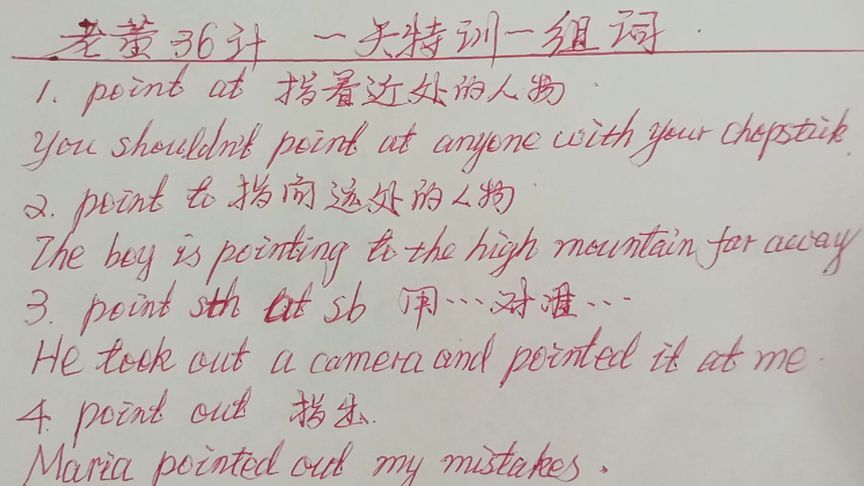 老董36计 一天特训一组词.
1. point at 指着近处的人物.
You shouldn't point at anyone with your chopstick
2. point to 指向远处的人物.
The boy is pointing to the high mountain far away
3. point sth at sb 用…对准…
He took out a camera and pointed it at me.
4. point out 指出.
Maria pointed out my mistakes.